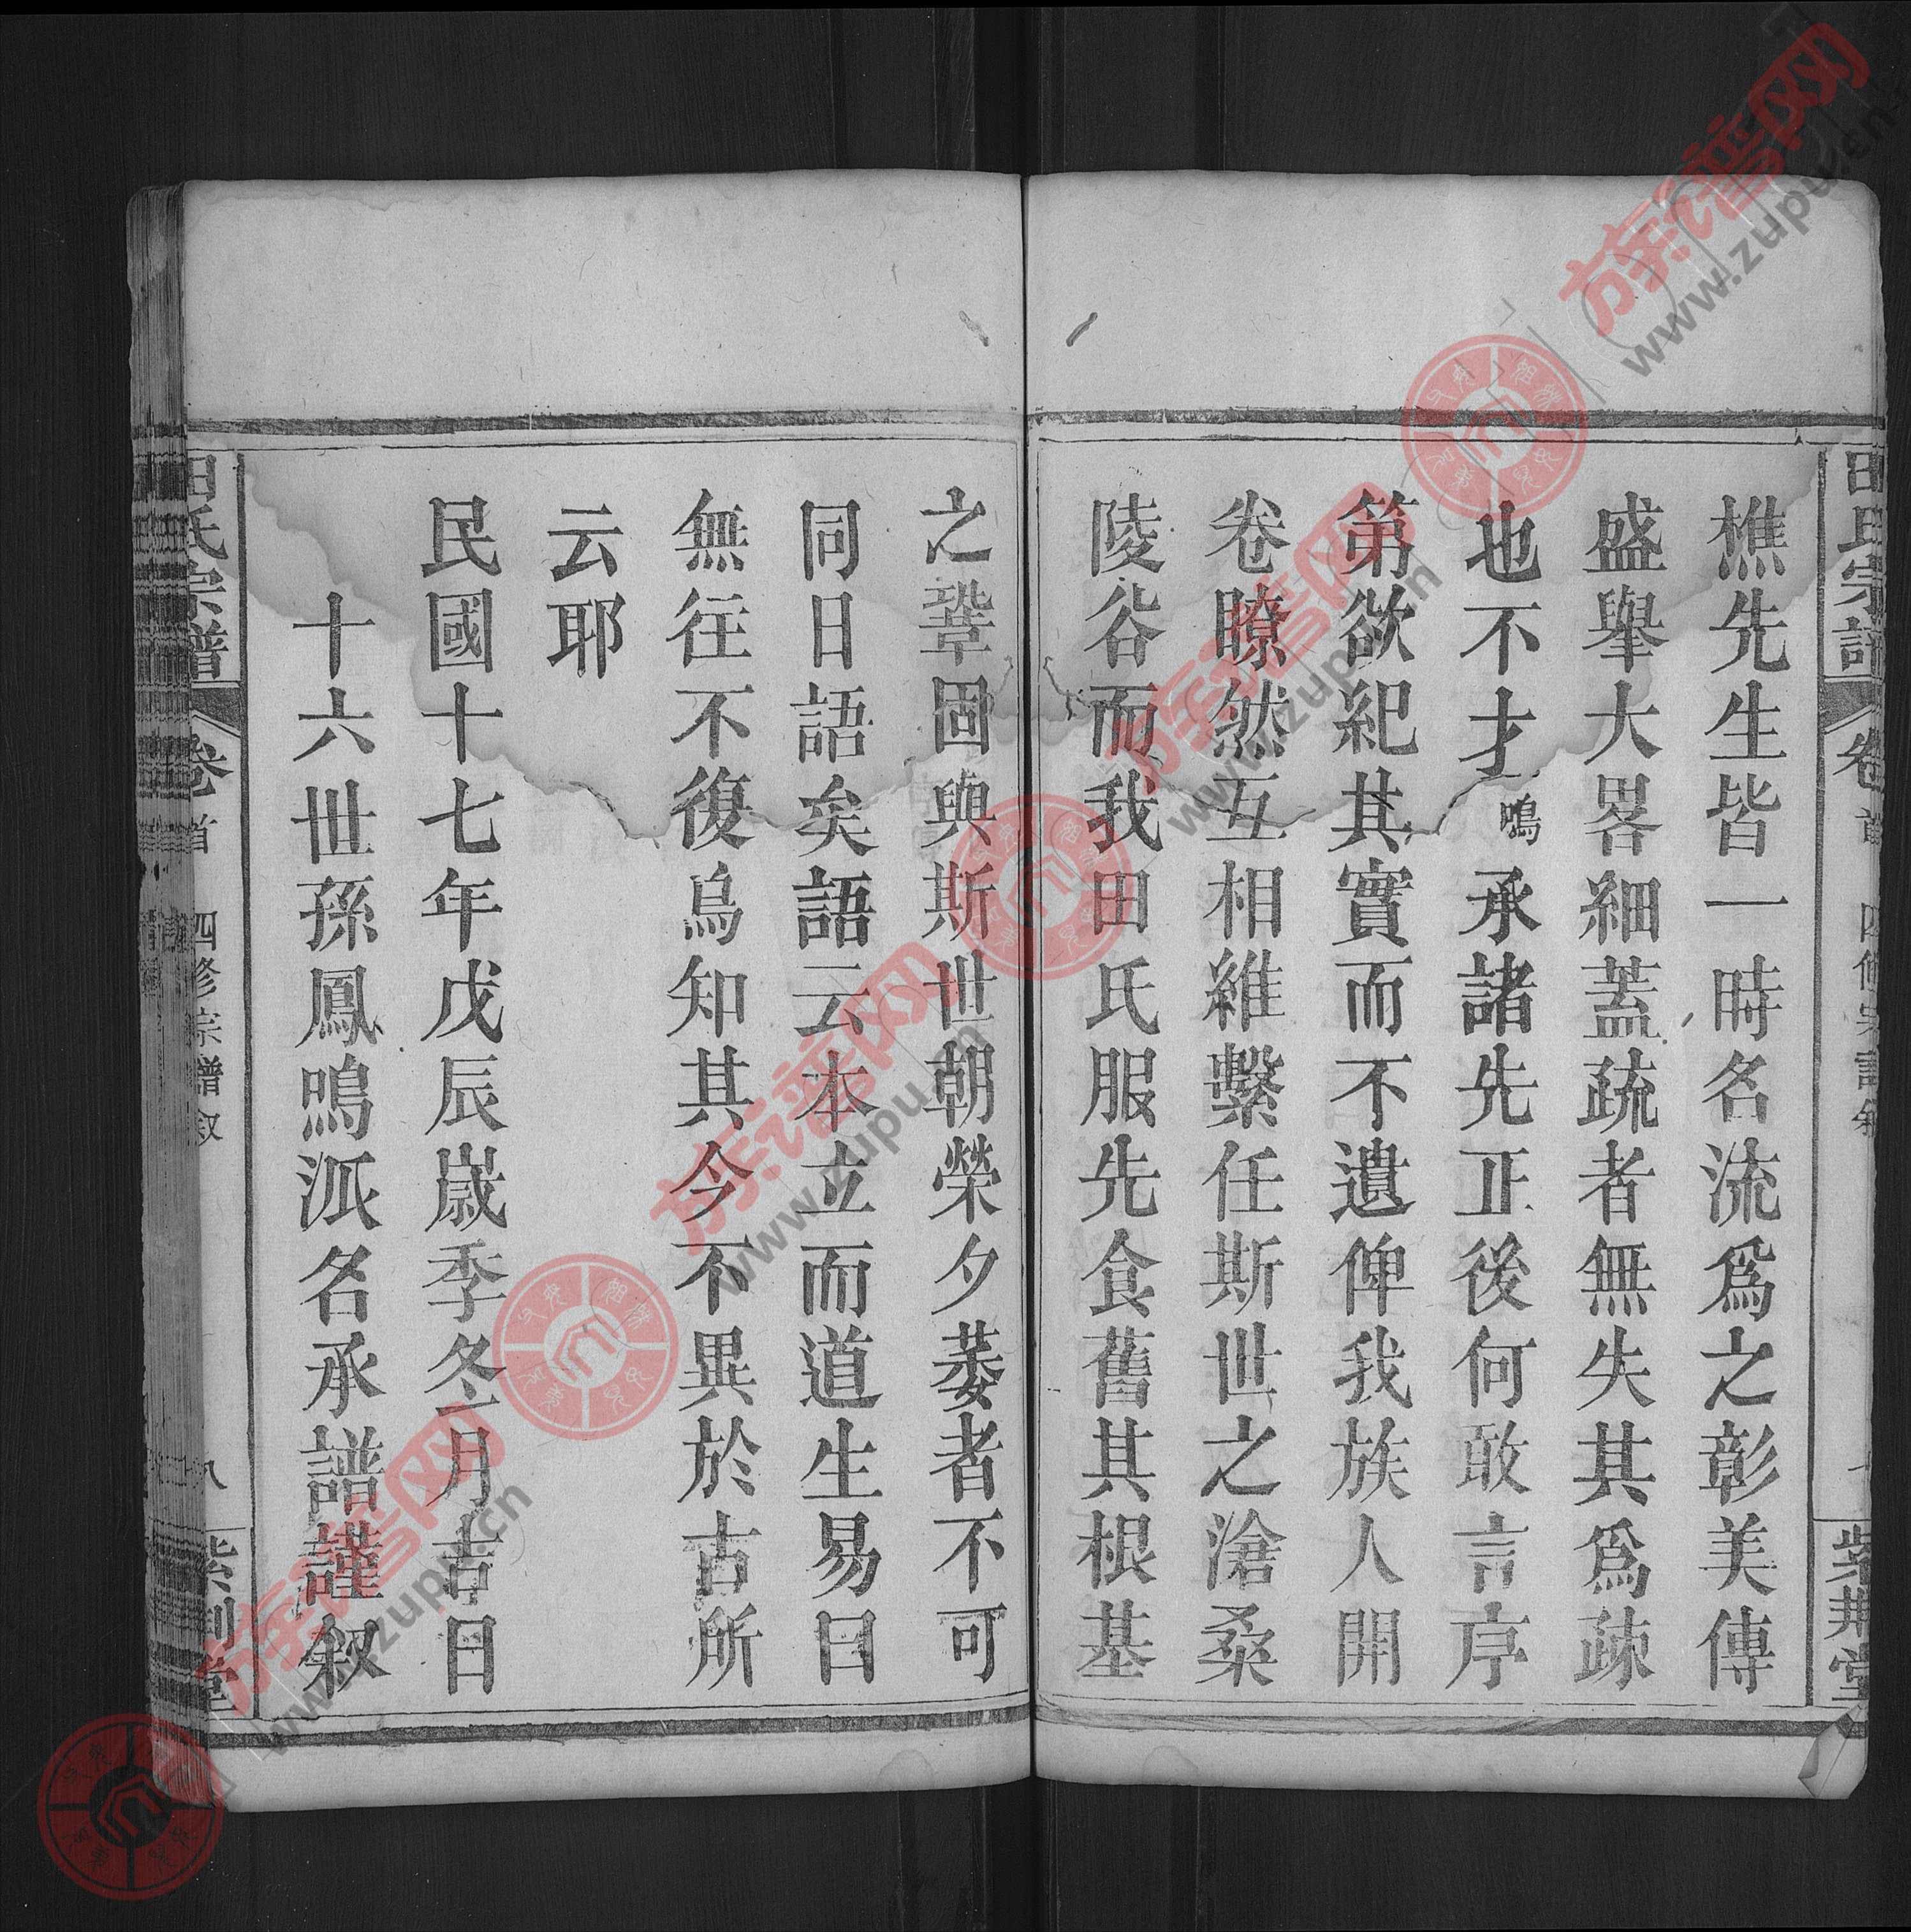 田氏宗譜
卷首
四修宗譜叙
紫荆堂
樵先生皆一時名流爲之彰美傳
盛舉大畧細蓋疏者無失其爲疎
也不才鳴承諸先正後何敢言序
第欲紀其實而不遺俾我族人開
卷瞭然互相維繫任斯世之滄桑
陵谷而我田氏服先食舊其根基
之鞏固與斯世朝榮夕萎者不可
同日語矣語云本立而道生易曰
無往不復烏知其今不異於古所
云耶
民國十七年戊辰歲季冬月吉日
十六世孫鳳鳴派名承譜謹叙
田氏宗譜
卷首
四修宗譜叙
八
紫荆堂
族谱网
www.zupu.cn
族谱网
www.zupu.cn
族谱网
www.zupu.cn
族谱网
www.zupu.cn